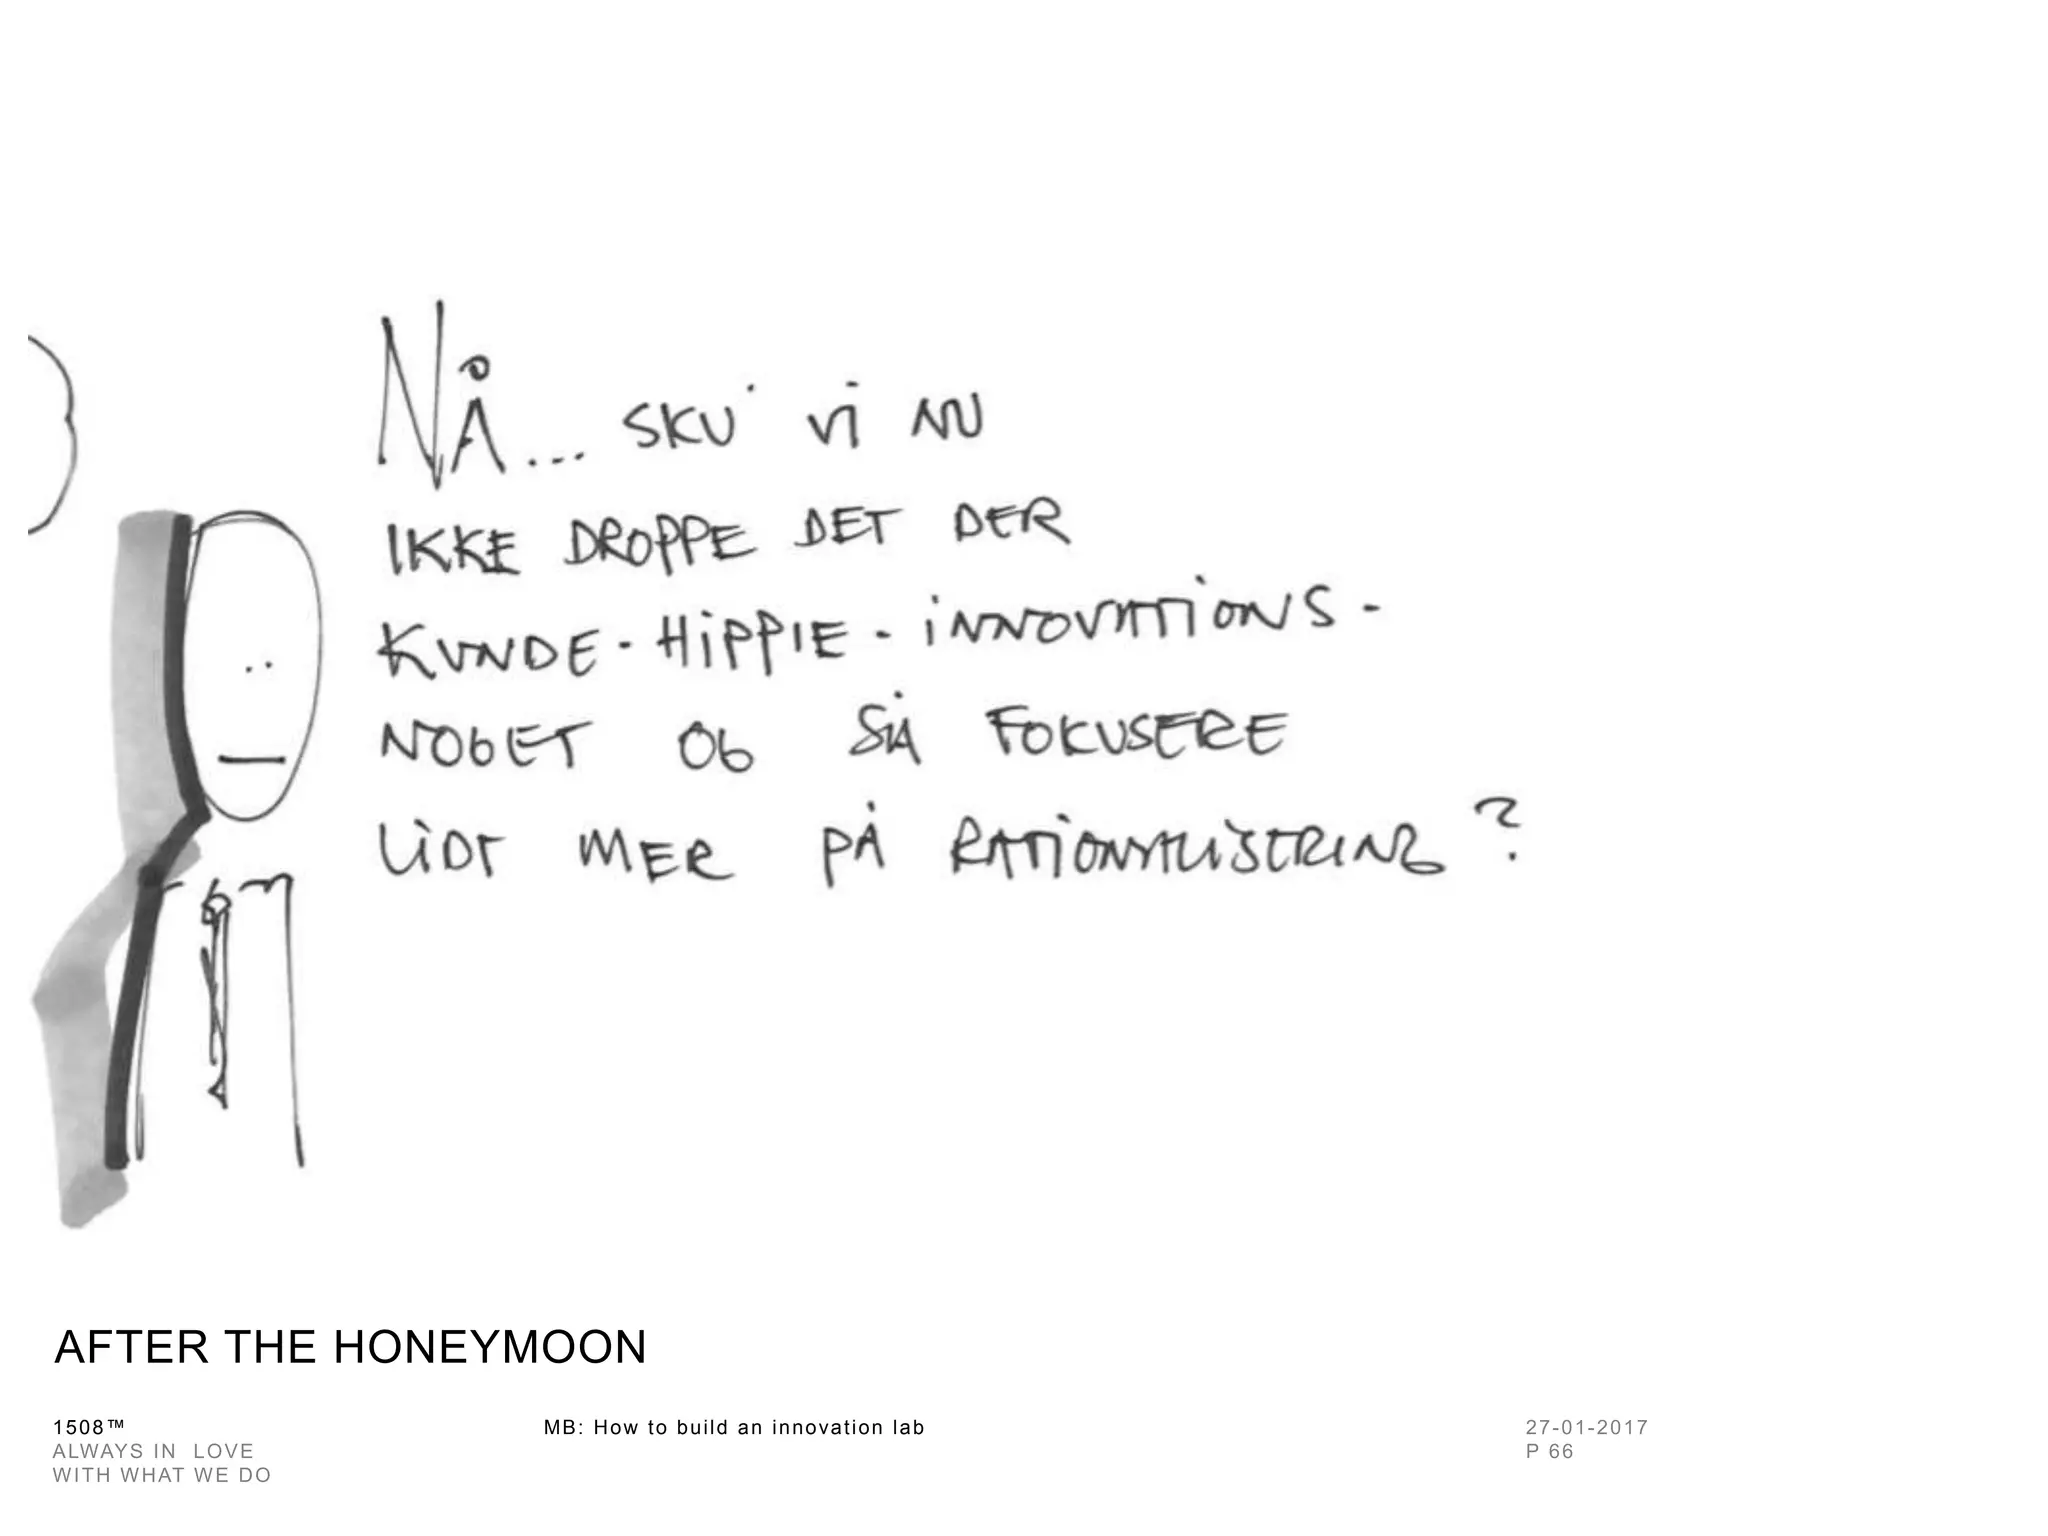 NÅ... SKU' VI NU
IKKE DROPPE DET DER
KUNDE-HIPPIE-INNOVATIONS-
NOGET OG SÅ FOKUSERE
LIDT MER PÅ RATIONALISERING?
AFTER THE HONEYMOON
1508™
ALWAYS IN LOVE
WITH WHAT WE DO
MB: How to build an innovation lab
27-01-2017
P 66